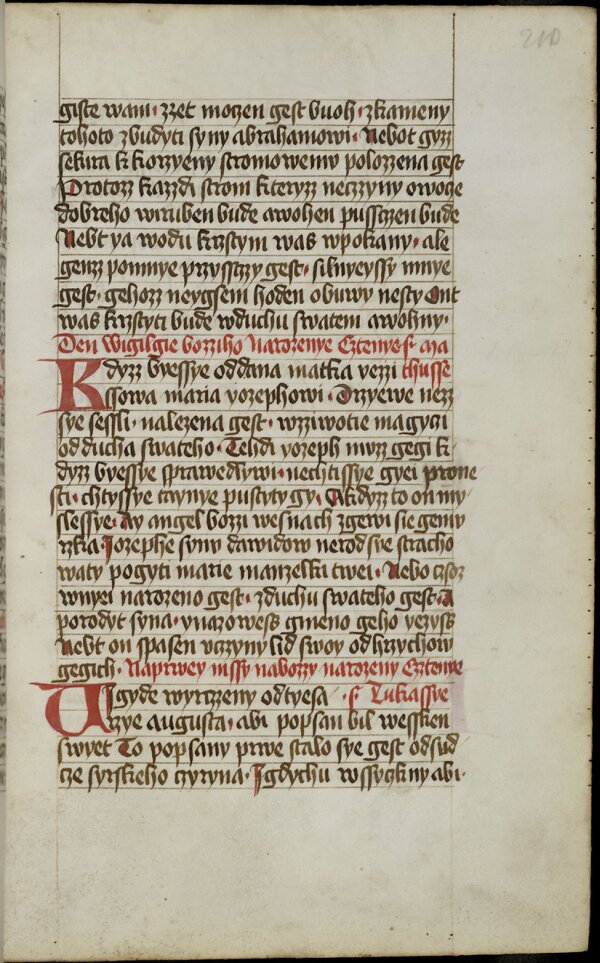 210
giste wam · zzet moczen gest buoh · zkameny
tohoto zbudyti syny abrahamowi · Nebot gyzz
sekira k korzyeny stromowemu polozzena gest
Protozz kazzdi strom kteryzz neczzyny owocze
dobreho wiruben bude awohen pussczen bude
Nebt ya wodu krzstym was wpokany · ale
genzz pomnye przysstzy gest · silnyeyssy mnye
gest · gehozz neygsem hoden obuwy nesty Ont
was krzstyti bude wduchu swatem awohny ·
Den Wigilgie bozziho Narozenye Cztenye s · Ma
Kdyzz byessye oddana matka yezzi thusse
ssowa maria yozephowi · Drzyewe nezz
sye sessli · nalezena gest · wzziwotie magyczi
od ducha swateho · Tehdi yozeph muzz gegi k
dyzz byessye sprawedlywi · nechtissye gyei prone
sti · chtyssye taynye pustyty gy · Akdyzz to on my
slessye · Ay angel bozzi wesnach zgewi sie gemu
rzka · Jozephe synu dawidow nerod sye stracho
waty pogyti marie manzelki twei · Nebo czoz
wnyezi narozeno gest · zduchu swateho gest · A
porodyt syna · ynazowess gmeno geho yezyss
Nebt on spasen uczyny lid swoy od hrzychow
gegich · Naprwey mssy nabozzy narozeny Cztenye
Uigyde wyrczzeny odtyesa · s · Lukassye
rzye augusta · abi popsan bil wessken
swyet To popsany prwe stalo sye gest odsud
cze syrskeho czyryna · Jgdychu wssyczkny abi ·